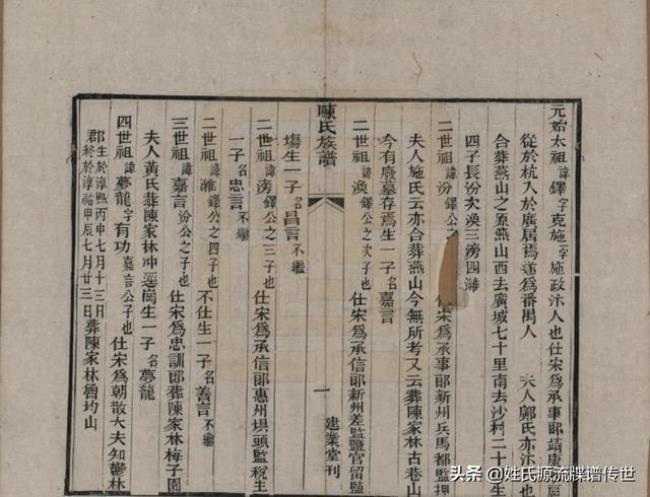 元始太祖諱鐸字克施一字施政汴人也仕宋為承事郎靖康居
從於杭入於廣居焉遂為番禺人 夫人鄭氏亦汴人也
合葬燕山之原燕山西去廣城七十里南去沙村二十生
四子長汾次渙三滂四濰
二世祖諱汾鐸公仕宋為承事郎新州兵馬都監押
夫人施氏云亦合葬燕山今無所考又云葬陳家林古巷山
今有廢墓存焉生一子名嘉言
二世祖諱渙鐸公之次子也仕宋為承信郎新州差監鹽官留監
陳氏族譜 一 建業堂刊
塲生一子名昌言不繼
二世祖諱滂鐸公之三子也仕宋為承信郎惠州垻頭監稅生
一子名忠言不繼
二世祖諱濰鐸公之四子也不仕生一子名善言不繼
三世祖諱嘉言汾公之子也仕宋為忠訓郎葬陳家林梅子園
夫人黃氏葬陳家林冲逕崗生一子名夢龍
四世祖諱夢龍字有功嘉言公子也仕宋為朝散大夫知鬱林
郡生於淳熙丙申七月十三日終於淳祐甲辰七月廿三日葬陳家林魯均山
头条 @姓氏源流牒谱传世